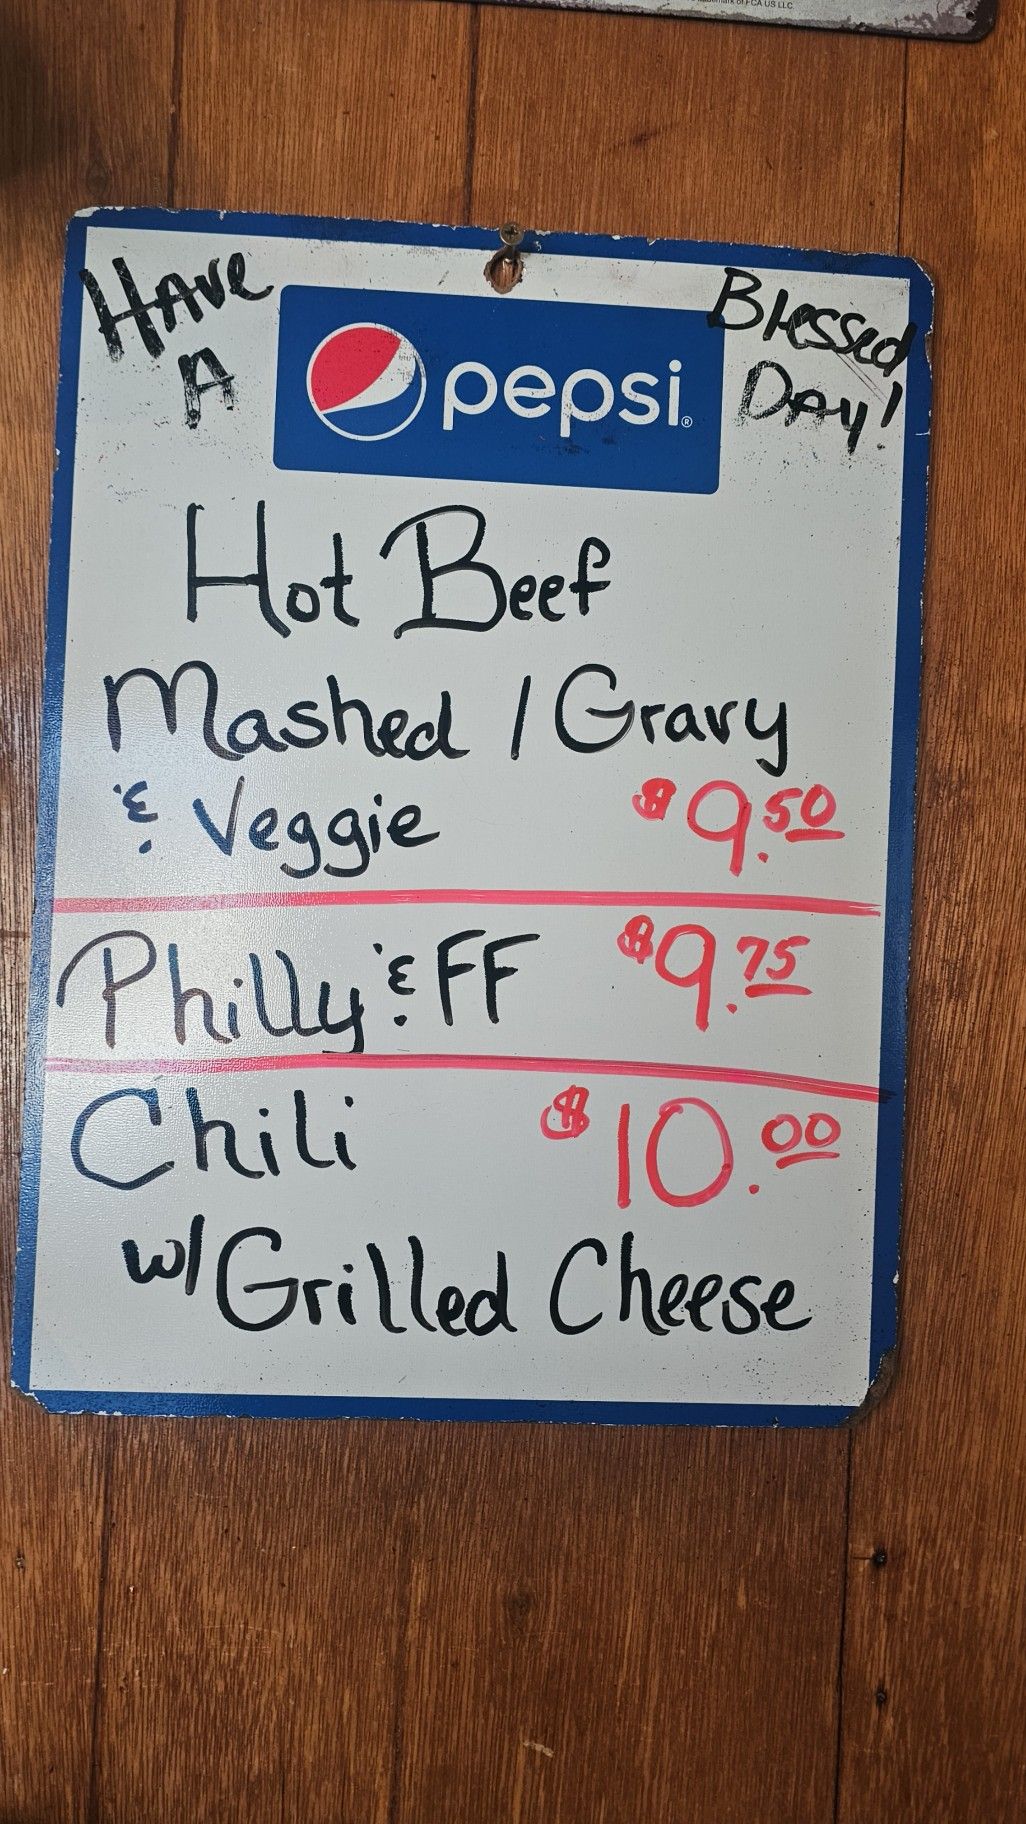 demark of FCA US LLC.
HAve
A
pepsi®
Blessed
DAy!
Hot Beef
Mashed / Gravy
& Veggie $9.50
Philly & FF $9.75
Chili $10.00
w/ Grilled Cheese